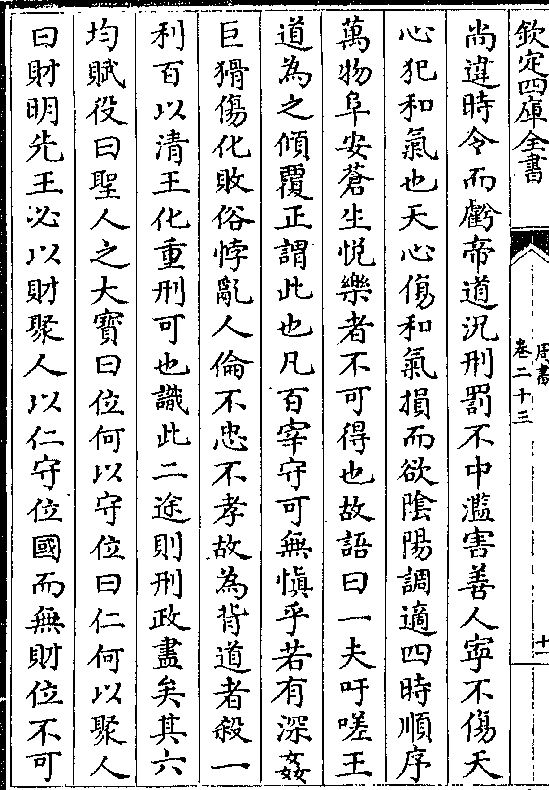 欽定四庫全書
周書
卷二十三
十一
尚違時令而虧帝道況刑罰不中濫害善人寧不傷天
心犯和氣也天心傷和氣損而欲陰陽調適四時順序
萬物阜安蒼生悅樂者不可得也故語曰一夫吁嗟王
道為之傾覆正謂此也凡百宰守可無慎乎若有深姦
巨猾傷化敗俗悖亂人倫不忠不孝故為背道者殺一
利百以清王化重刑可也識此二途則刑政盡矣其六
均賦役曰聖人之大寶曰位何以守位曰仁何以聚人
曰財明先王必以財聚人以仁守位國而無財位不可